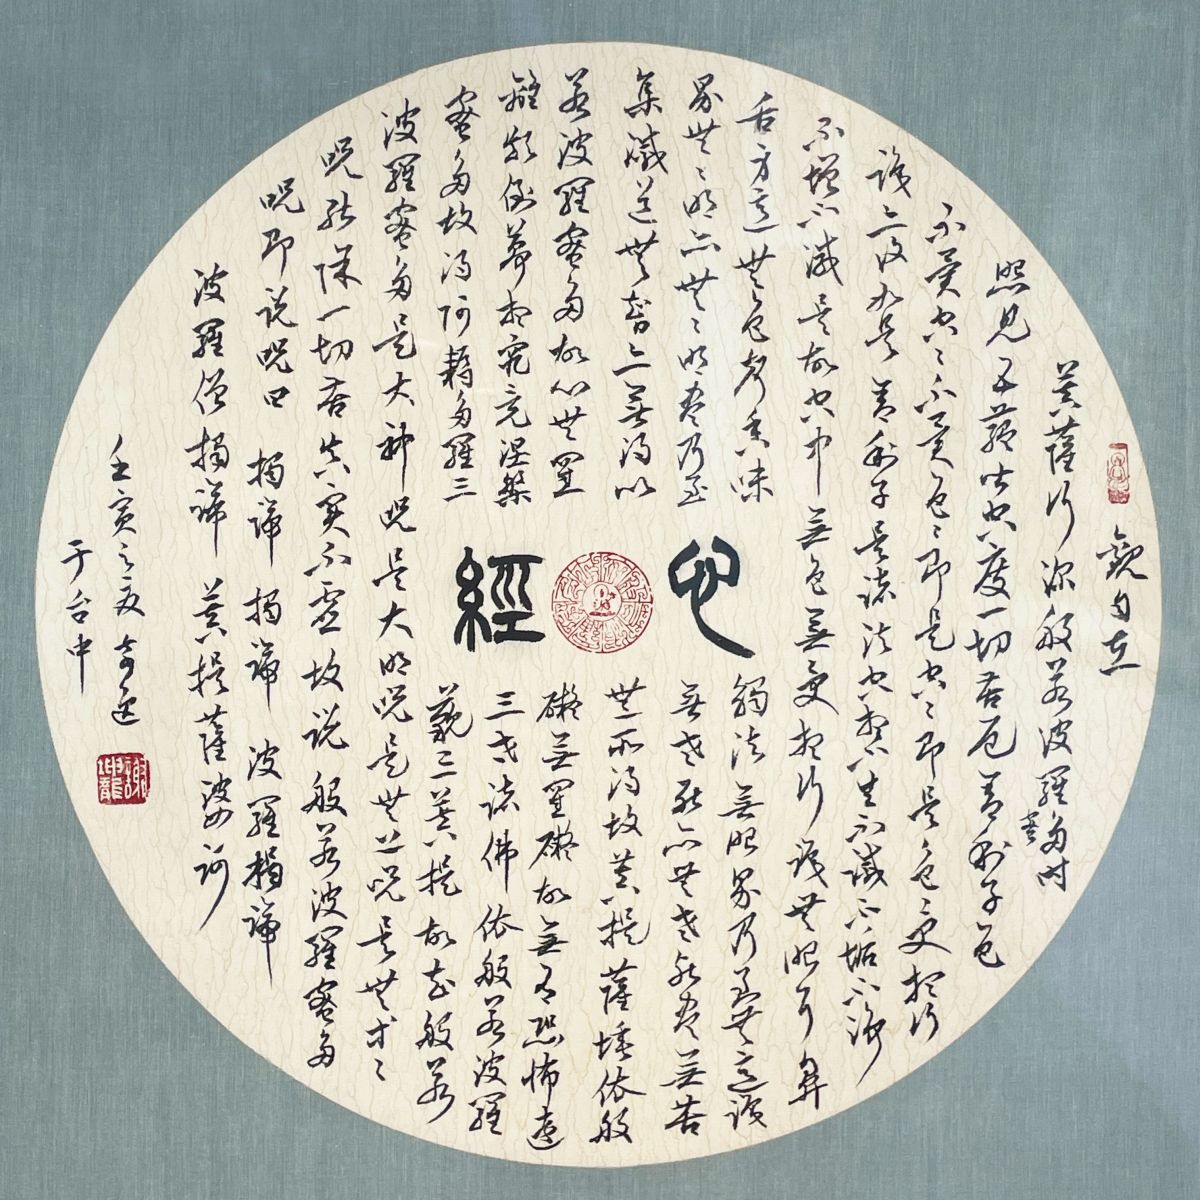 觀自在
菩薩行深般若波羅蜜多時
照見五蘊皆空度一切苦厄舍利子色
不異空々不異色々即是空々即是色々受想行
識亦復如是舍利子是諸法空相不生不滅不垢不淨
不增不減是故空中無色無受想行識無眼耳鼻
舌身意無色聲香味
觸法無眼界乃至無意識
界無々明亦無々明盡乃至
無老死亦無老死盡無苦
集滅道無智亦無得以
無所得故菩提薩埵依般
若波羅蜜多故心無罣
礙無罣礙故無有恐怖遠
離顛倒夢想究竟涅槃
三世諸佛依般若波羅
蜜多故得阿耨多羅三
藐三菩提故知般若
波羅蜜多是大神咒是大明咒是無上咒是無等々
咒能除一切苦真實不虛故說般若波羅蜜多
咒即說咒曰 揭諦 揭諦 波羅揭諦
波羅僧揭諦 菩提薩婆訶
心經
壬寅之夏
于台中